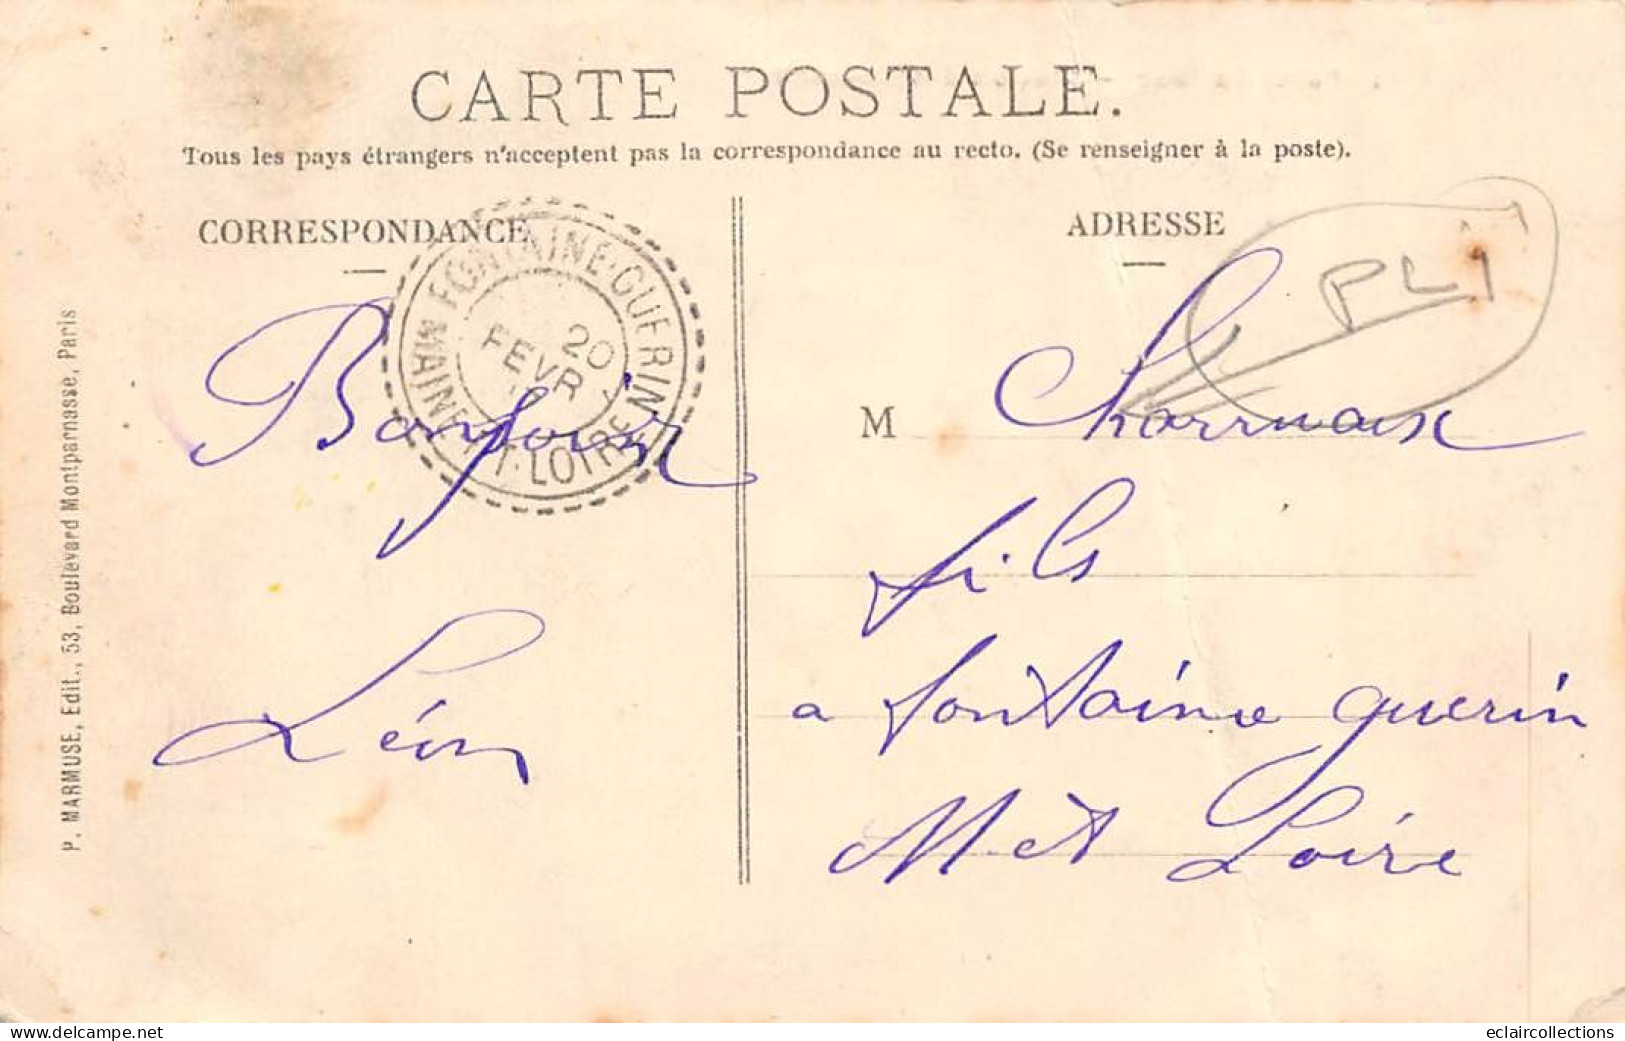 CARTE POSTALE.
Tous les pays étrangers n'acceptent pas la correspondance au recto. (Se renseigner à la poste).
CORRESPONDANCE
FONTAINE-GUERIN
20
FEVR
MAINE-ET-LOIRE
Bonjour
Léon
P. MARMUSE, Edit., 53, Boulevard Montparnasse, Paris
ADRESSE
PLI
M Charruaix
fils
a fontaine guerin
M. et Loire
delcampe.net
eclaircollections